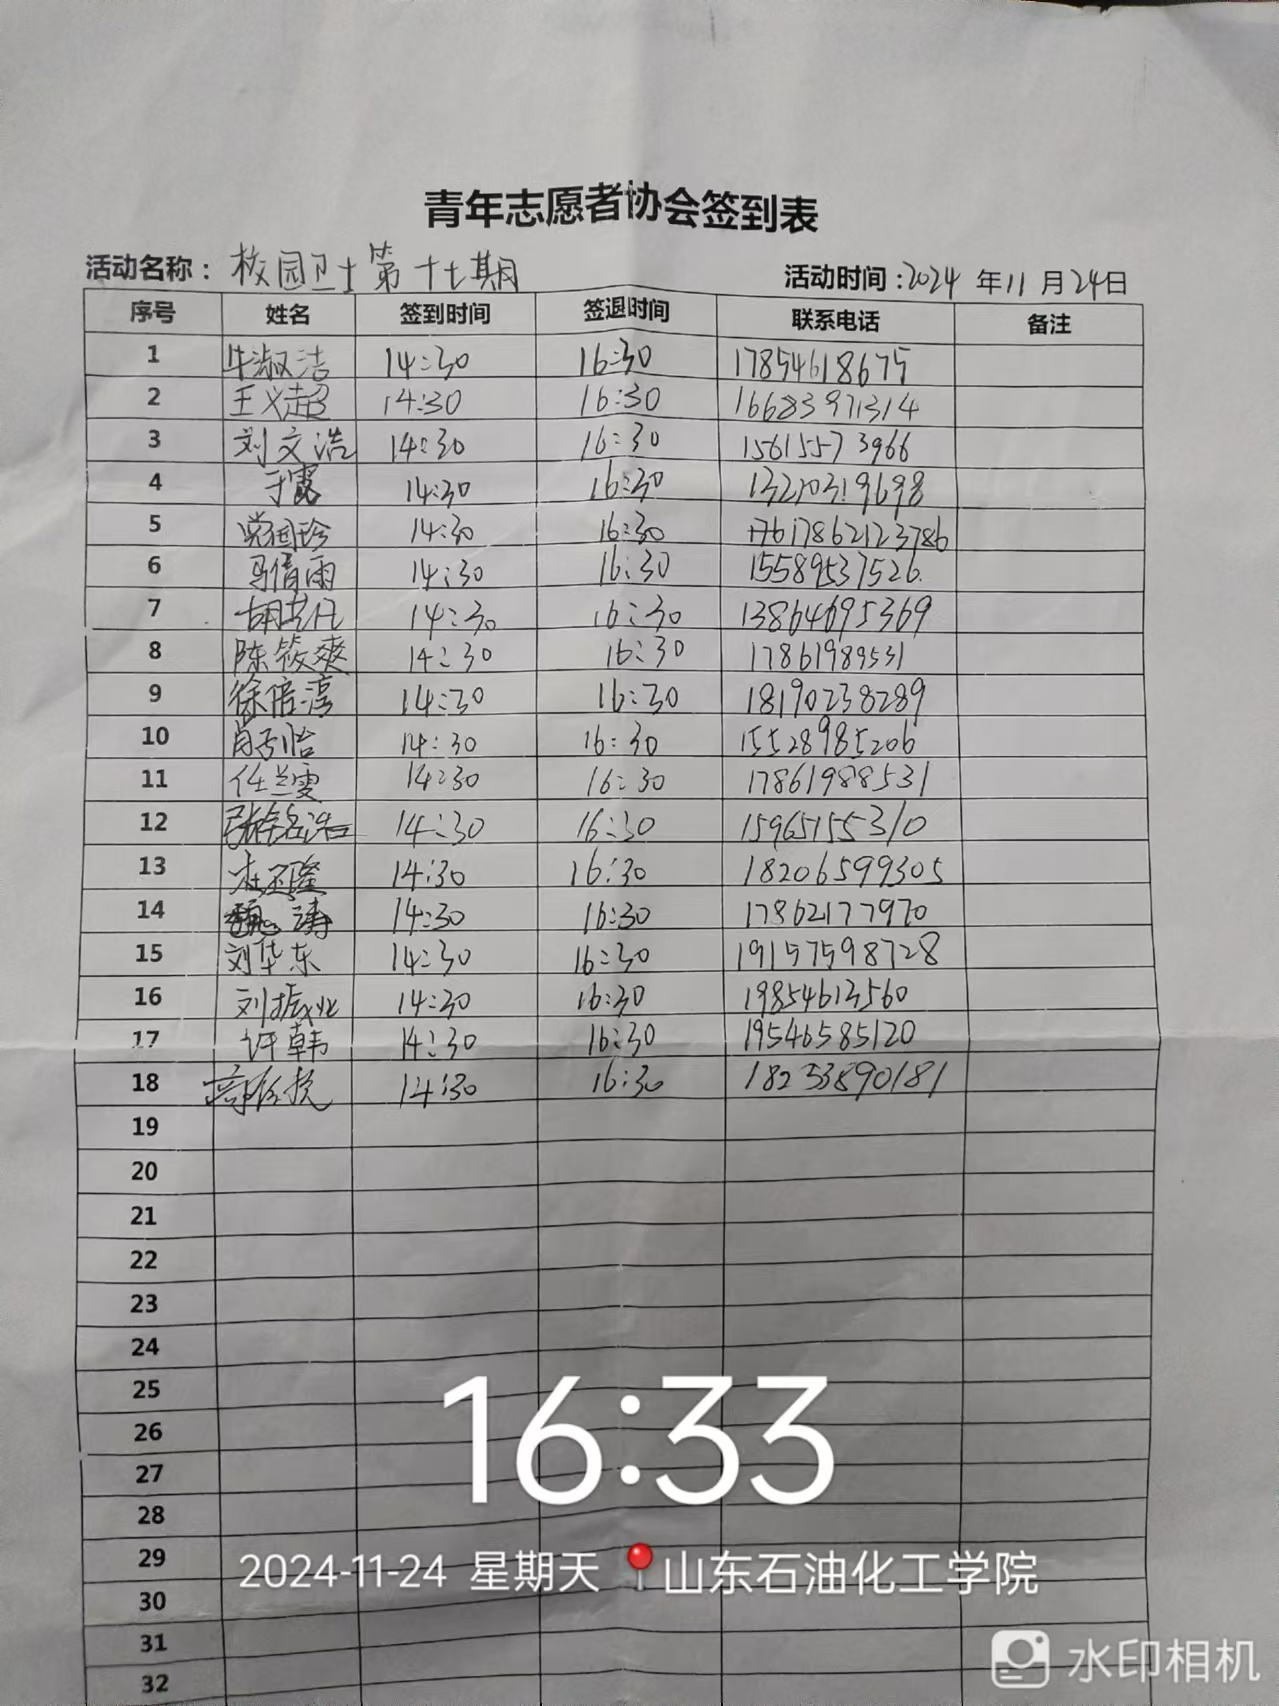 青年志愿者协会签到表
活动名称：校园卫士第十七期 活动时间：2024年11月24日
序号 姓名 签到时间 签退时间 联系电话 备注
1 牛淑洁 14:30 16:30 17854618675
2 王义超 14:30 16:30 16683971314
3 刘文浩 14:30 16:30 15615573966
4 于露 14:30 16:30 13210319698
5 14:30 16:30 17862123786
6 马倩雨 14:30 16:30 15589537526
7 14:30 16:30 13864695369
8 陈筱爽 14:30 16:30 17861989531
9 徐倍淳 14:30 16:30 18190238289
10 肖子怡 14:30 16:30 15528985206
11 任兰雯 14:30 16:30 17861988531
12 14:30 16:30 15965155310
13 14:30 16:30 18206599305
14 魏涛 14:30 16:30 17862177970
15 刘华东 14:30 16:30 19157598728
16 刘振业 14:30 16:30 19854613560
17 许韩 14:30 16:30 19546585120
18 14:30 16:30 18253890181
19
20
21
22
23
24
25
26
27
28
29
30
31
32
16:33
2024-11-24 星期天 山东石油化工学院
水印相机